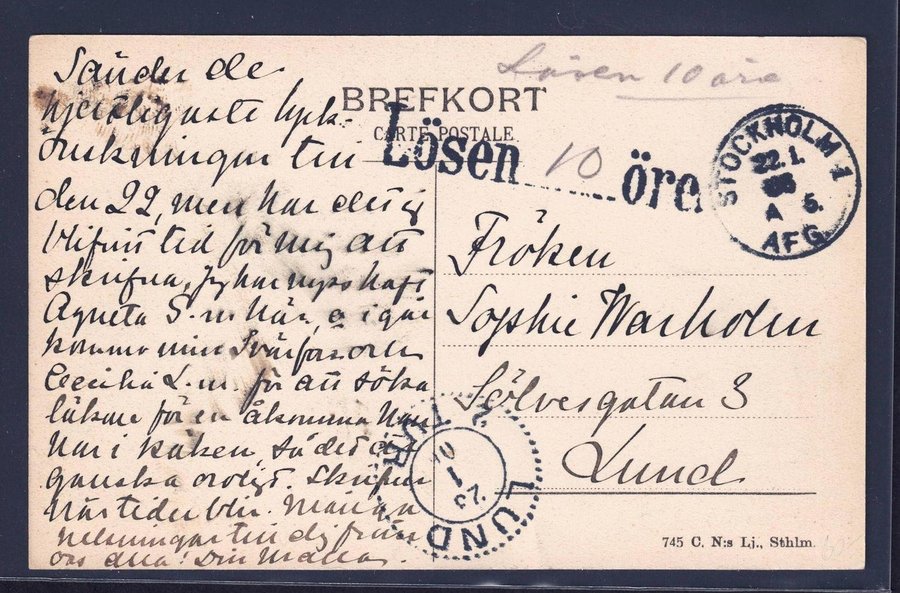 Sänder de
hjertligaste lyck-
önskningar till
den 22, men har det ej
blifvit tid för mig att
skrifva, Jag har nyss haft
Agneta S-m här, o i går
kommo min Svärfar och
Cecilia L-m för att söka
läkare för en åkomma han
har i käken, så det är
ganska oroligt. Skrifver
när tider blir. Många
helsningar till dig från
oss alla! Din
Lösen 10 öre
BREFKORT
CARTE POSTALE
Lösen 10 öre
STOCKHOLM 1
22.1.
A 5.
AFG.
Fröken
Sophie Warholm
Sölvegatan 3
Lund
LUND
23
1
745 C. N:s Lj., Sthlm.